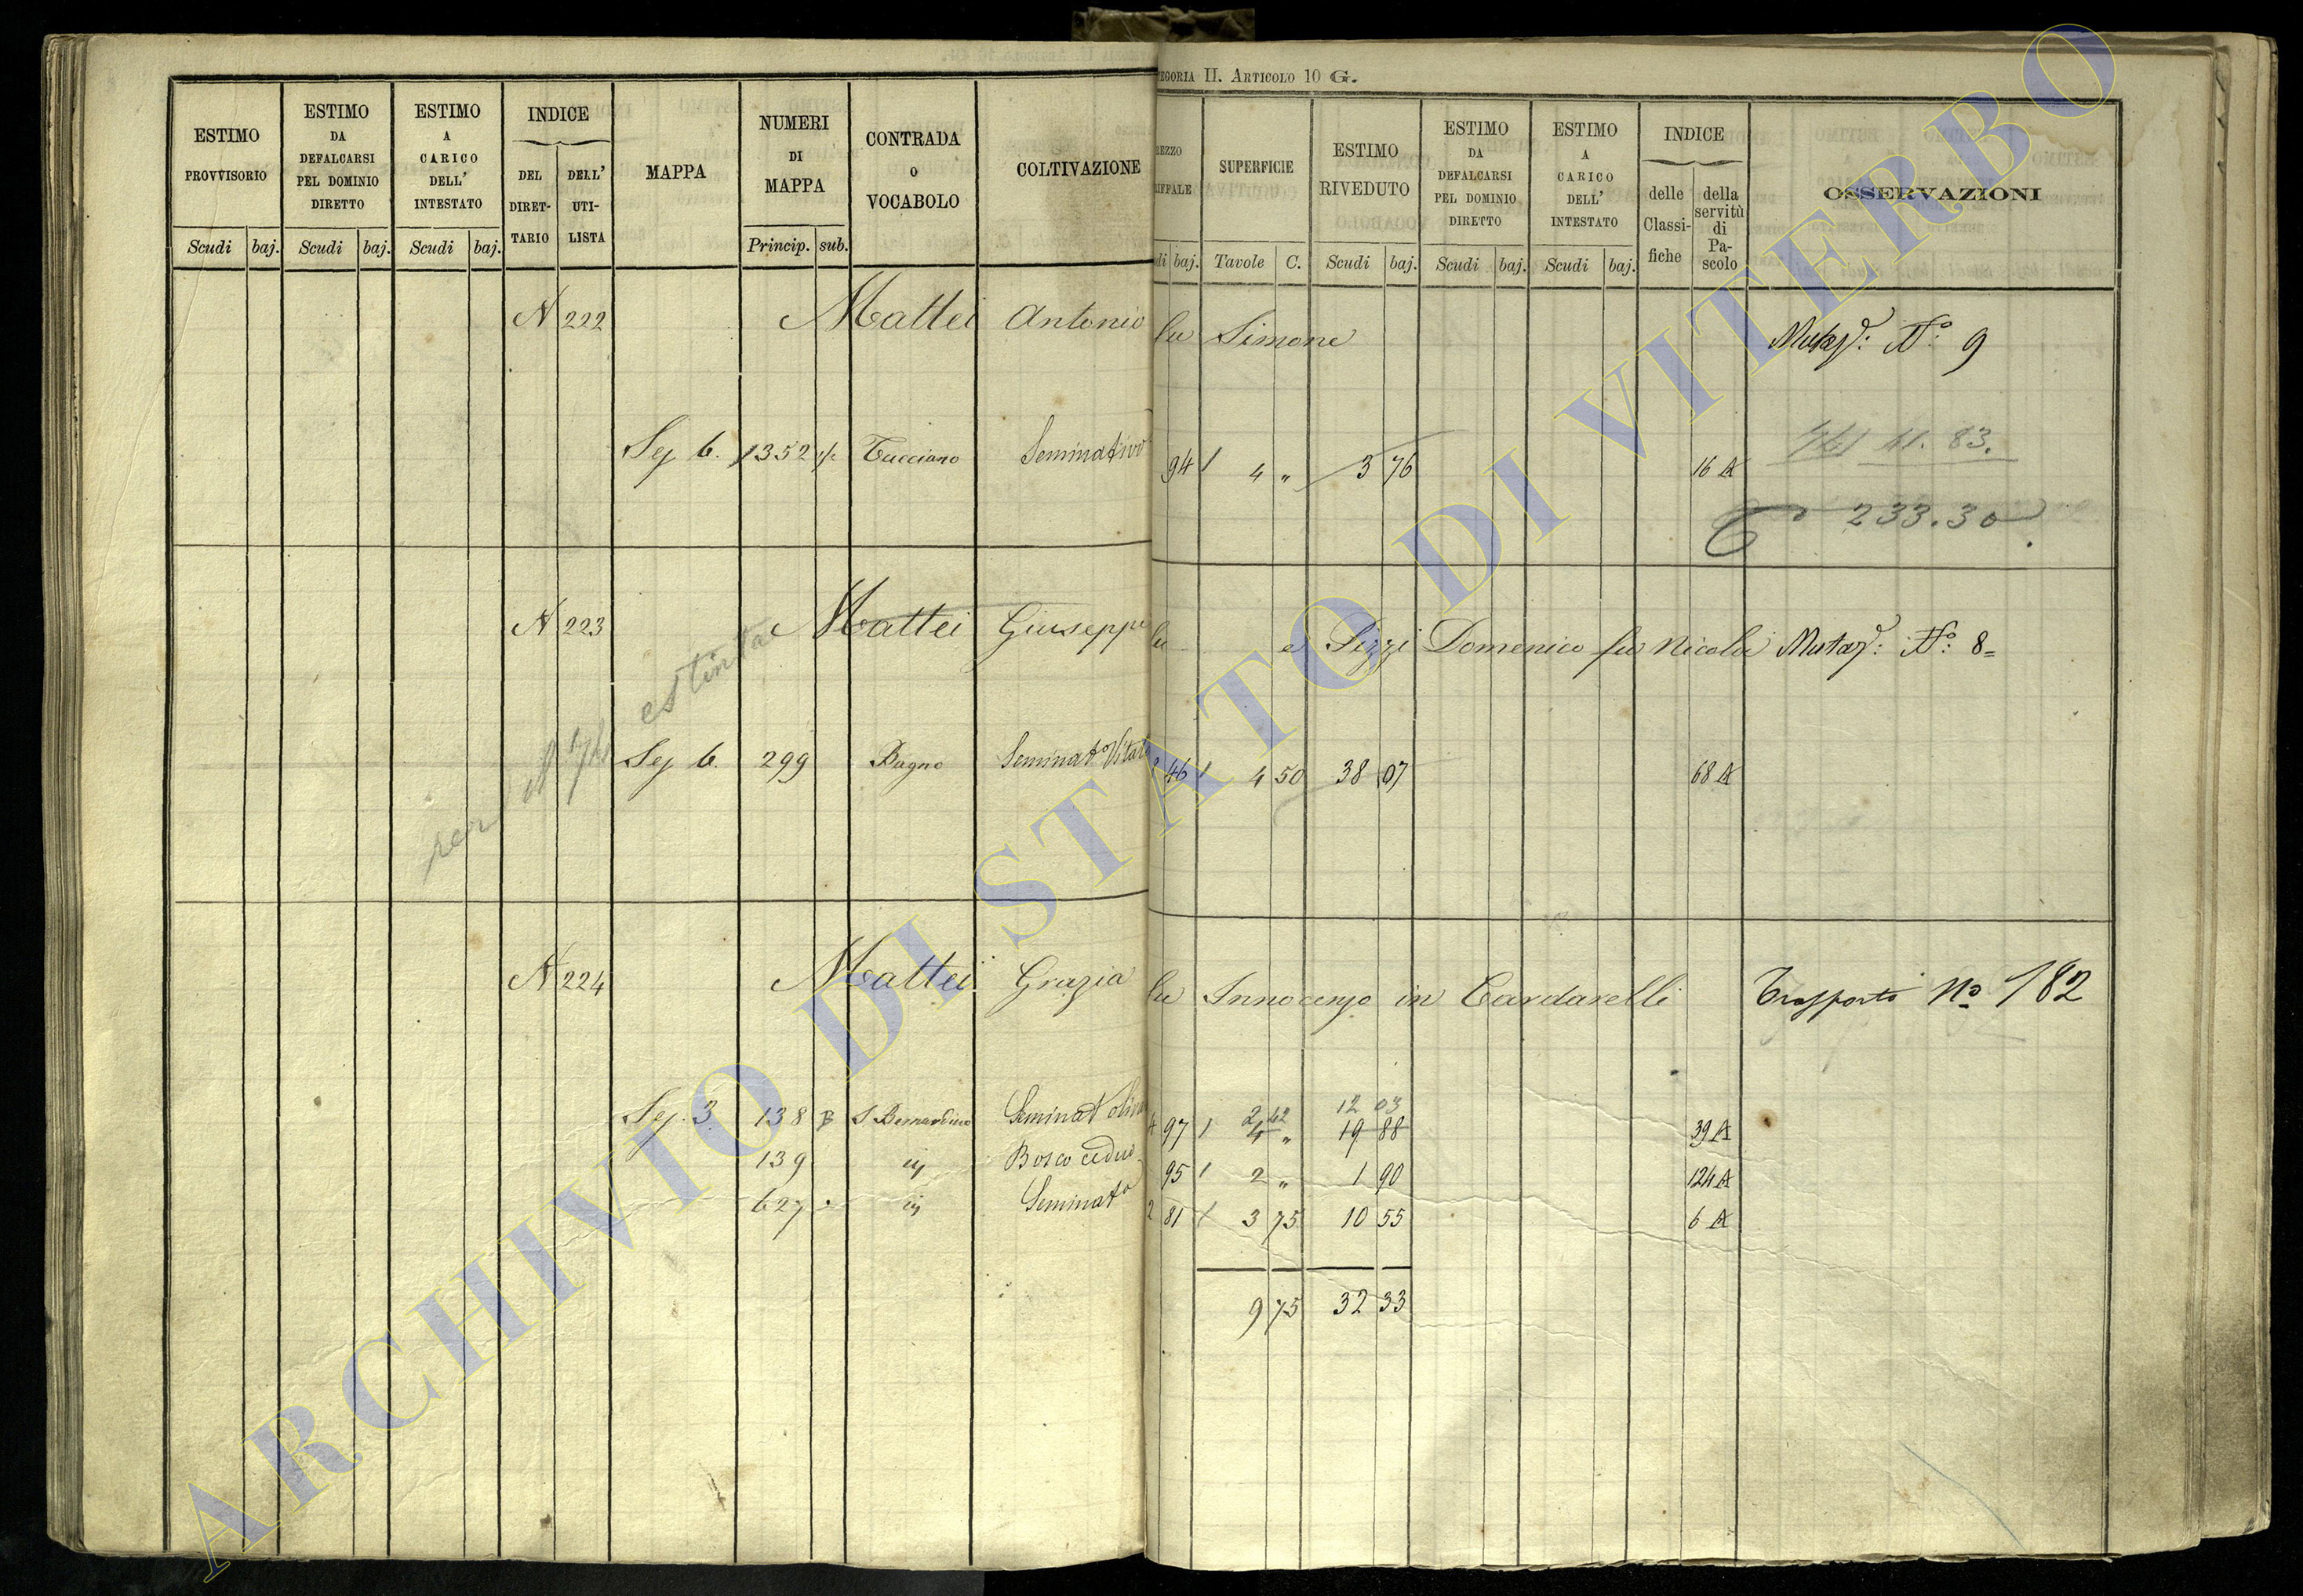 EGORIA II. ARTICOLO 10 G.
ESTIMO PROVVISORIO
ESTIMO DA DEFALCARSI PEL DOMINIO DIRETTO
ESTIMO A CARICO DELL' INTESTATO
INDICE
DEL DIRET-TARIO
DELL' UTI-LISTA
MAPPA
NUMERI DI MAPPA
CONTRADA O VOCABOLO
COLTIVAZIONE
Scudi baj. Scudi baj. Scudi baj. Princip. sub.
REZZO IFFALE
SUPERFICIE
ESTIMO RIVEDUTO
ESTIMO DA DEFALCARSI PEL DOMINIO DIRETTO
ESTIMO A CARICO DELL' INTESTATO
INDICE
delle Classi-fiche
della servitù di Pa-scolo
OSSERVAZIONI
di baj. Tavole C. Scudi baj. Scudi baj. Scudi baj.
N 222 Mattei Antonio fu Simone N.º 9
Sez 6. 1352 Tucciano Seminativo 94 4 " 3 76 16 A
41. 83.
233.30
N 223 Mattei Giuseppe fu e Pizzi Domenico fu Nicola N.º 8=
estinta
Sez 6. 299 Bagno Seminat.º Vitat 46 4 50 38 07 68 A
N 224 Mattei Grazia fu Innocenzo in Cardarelli Trasporto Nº 182
2 42 12 03
Sez. 3 138 B S Bernardino Seminat Oliva 4 97 4 " 19 88 39 A
139 Bosco ceduo 95 2 " 1 90 124 A
627 Seminatº 2 81 3 75 10 55 6 A
9 75 32 33
ARCHIVIO DI STATO DI VITERBO